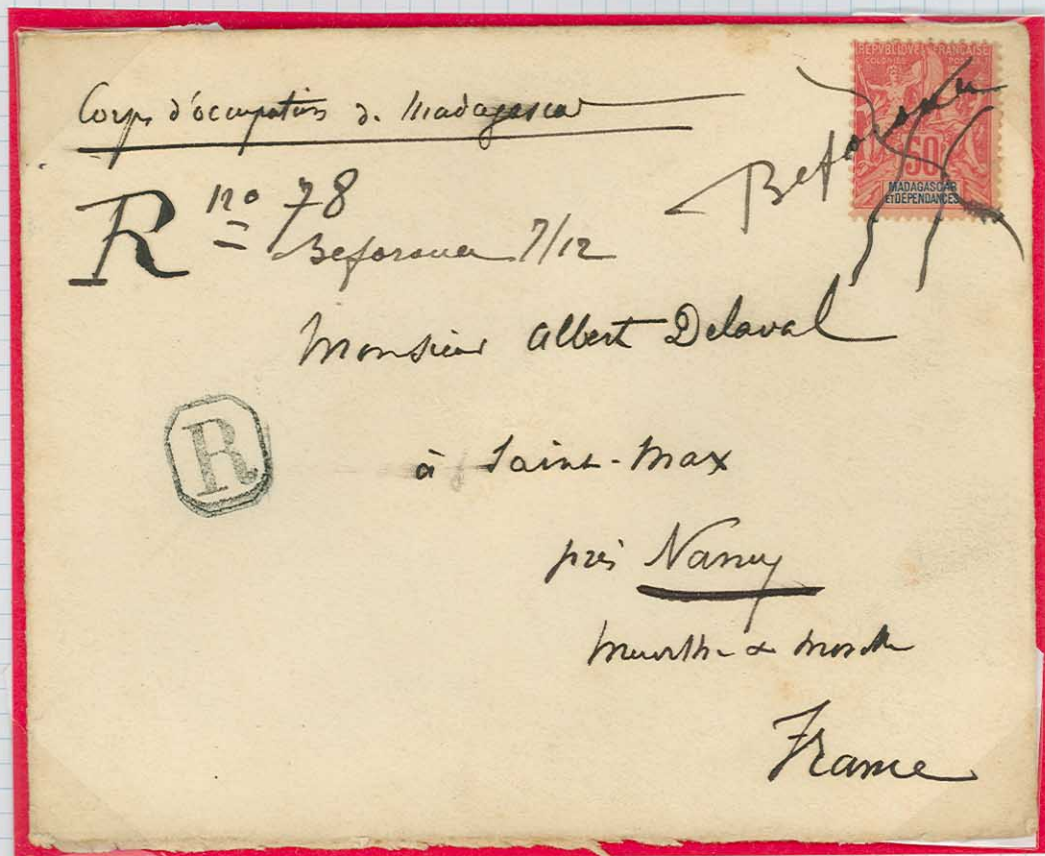 Corps d'occupation de Madagascar
REPUBLIQUE FRANÇAISE
COLONIES POSTES
50
MADAGASCAR
ET DÉPENDANCES
Beforona
R no 78
Beforona 7/12
Monsieur Albert Delaval
R
à Saint-Max
près Nancy
Meurthe & Moselle
France